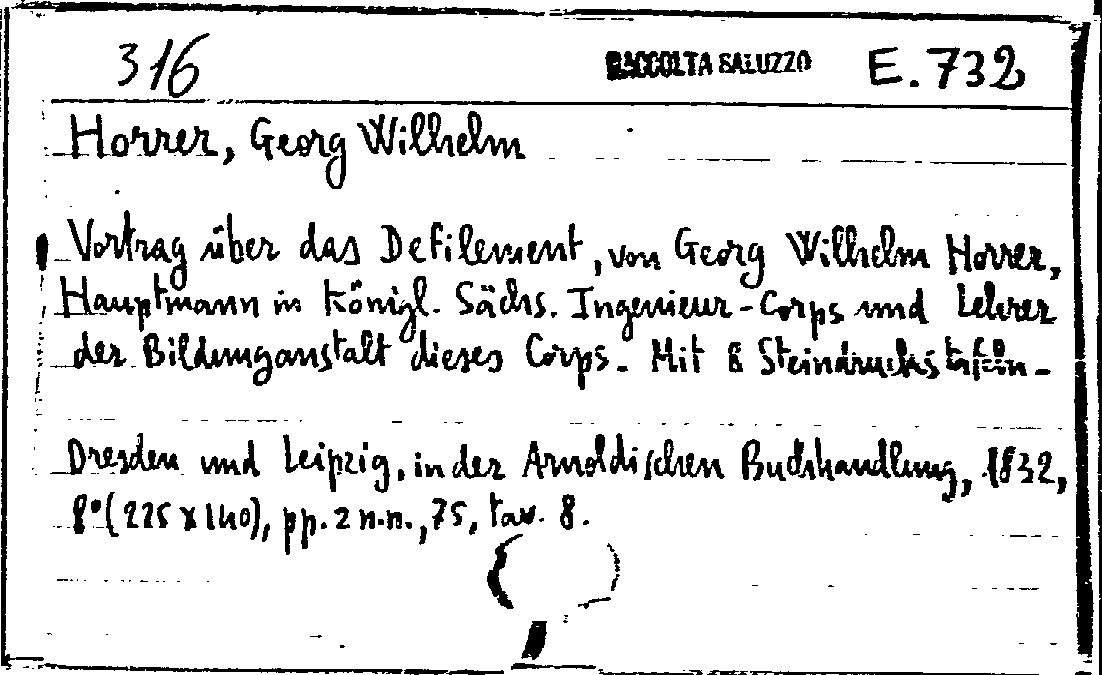 316 RACCOLTA SALUZZO E.732
Horrer, Georg Wilhelm
Vortrag über das Defilement, von Georg Wilhelm Horrer,
Hauptmann in Königl. Sächs. Ingenieur-Corps und Lehrer
der Bildunganstalt dieses Corps. Mit 8 Steindruckstafeln-
Dresden und Leipzig, in der Arnoldischen Buchhandlung, 1832,
8°(225 x 140), pp. 2 n.n., 75, tav. 8.